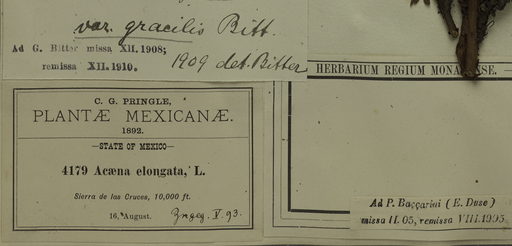 var. gracilis Bitt.
Ad G. Bitter missa XII. 1908;
remissa XII. 1910.
1909 det. Bitter
HERBARIUM REGIUM MONACENSE.
C. G. PRINGLE,
PLANTÆ MEXICANÆ.
1892.
—STATE OF MEXICO—
4179 Acæna elongata, L.
Sierra de las Cruces, 10,000 ft.
16, August.
V. 93.
Ad P. Baccarini (E. Duse)
missa II. 05, remissa VIII. 1905.